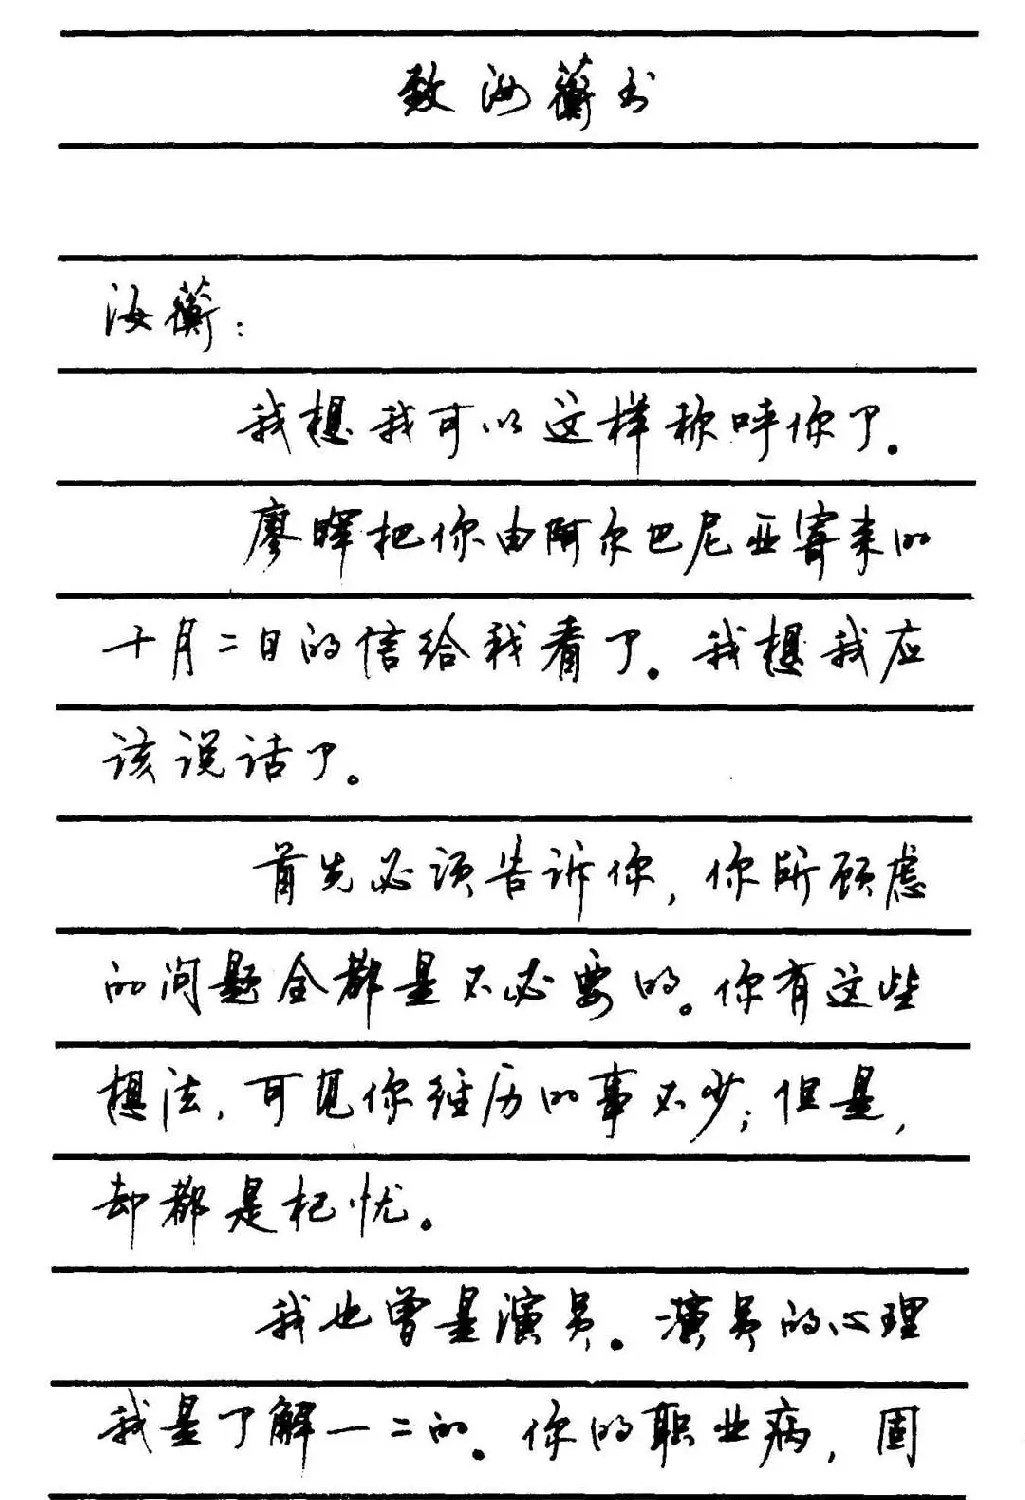 致海蘅书
海蘅：
我想我可以这样称呼你了。
廖晖把你由阿尔巴尼亚寄来的
十月二日的信给我看了。我想我应
该说话了。
首先必须告诉你，你所顾虑
的问题全都是不必要的。你有这些
想法，可见你经历的事不少；但是，
却都是杞忧。
我也曾是演员。演员的心理
我是了解一二的。你的职业病，固